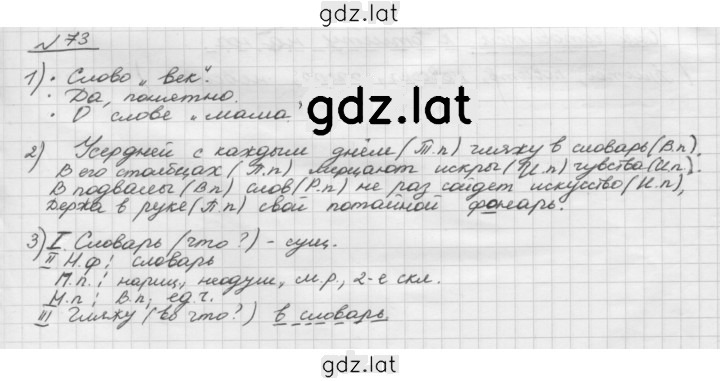 gdz.lat
№73
1) • Слово „век".
• Да, понятно.
• О слове „мама."
gdz.lat
2) Усердней с каждым днём (Т.п) гляжу в словарь (В.п).
В его столбцах (П.п) мерцают искры (И.п) чувства (И.п).
В подвалы (В.п) слов (Р.п) не раз сойдет искусство (И.п),
Держа в руке (П.п) свой потайной фонарь.
3) I. Словарь (что?) - сущ.
II Н.ф: словарь
П.п.: нариц, неодуш, м.р, 2-е скл.
Н.п: В.п, ед.ч.
III Гляжу (во что?) в словарь.
gdz.lat